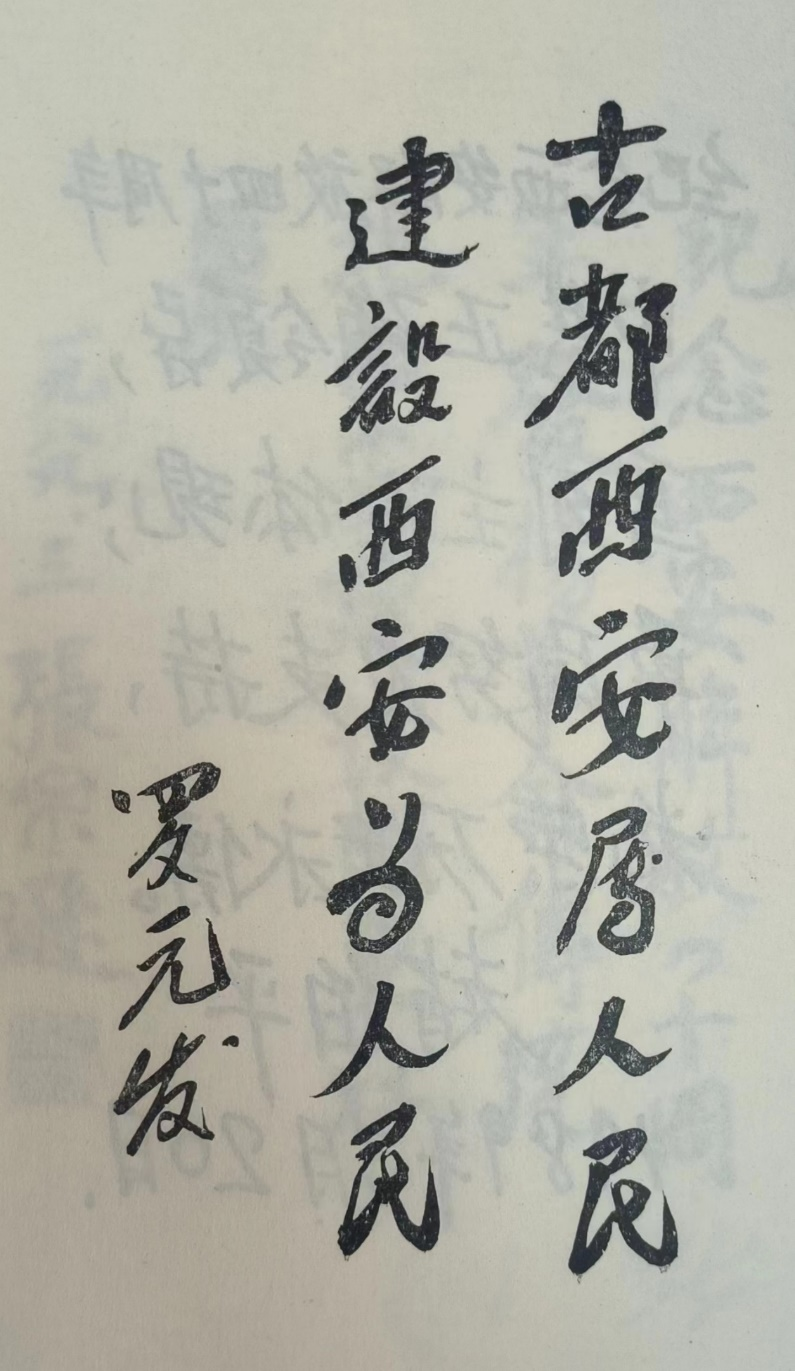 古都西安属人民
建設西安为人民
罗元发